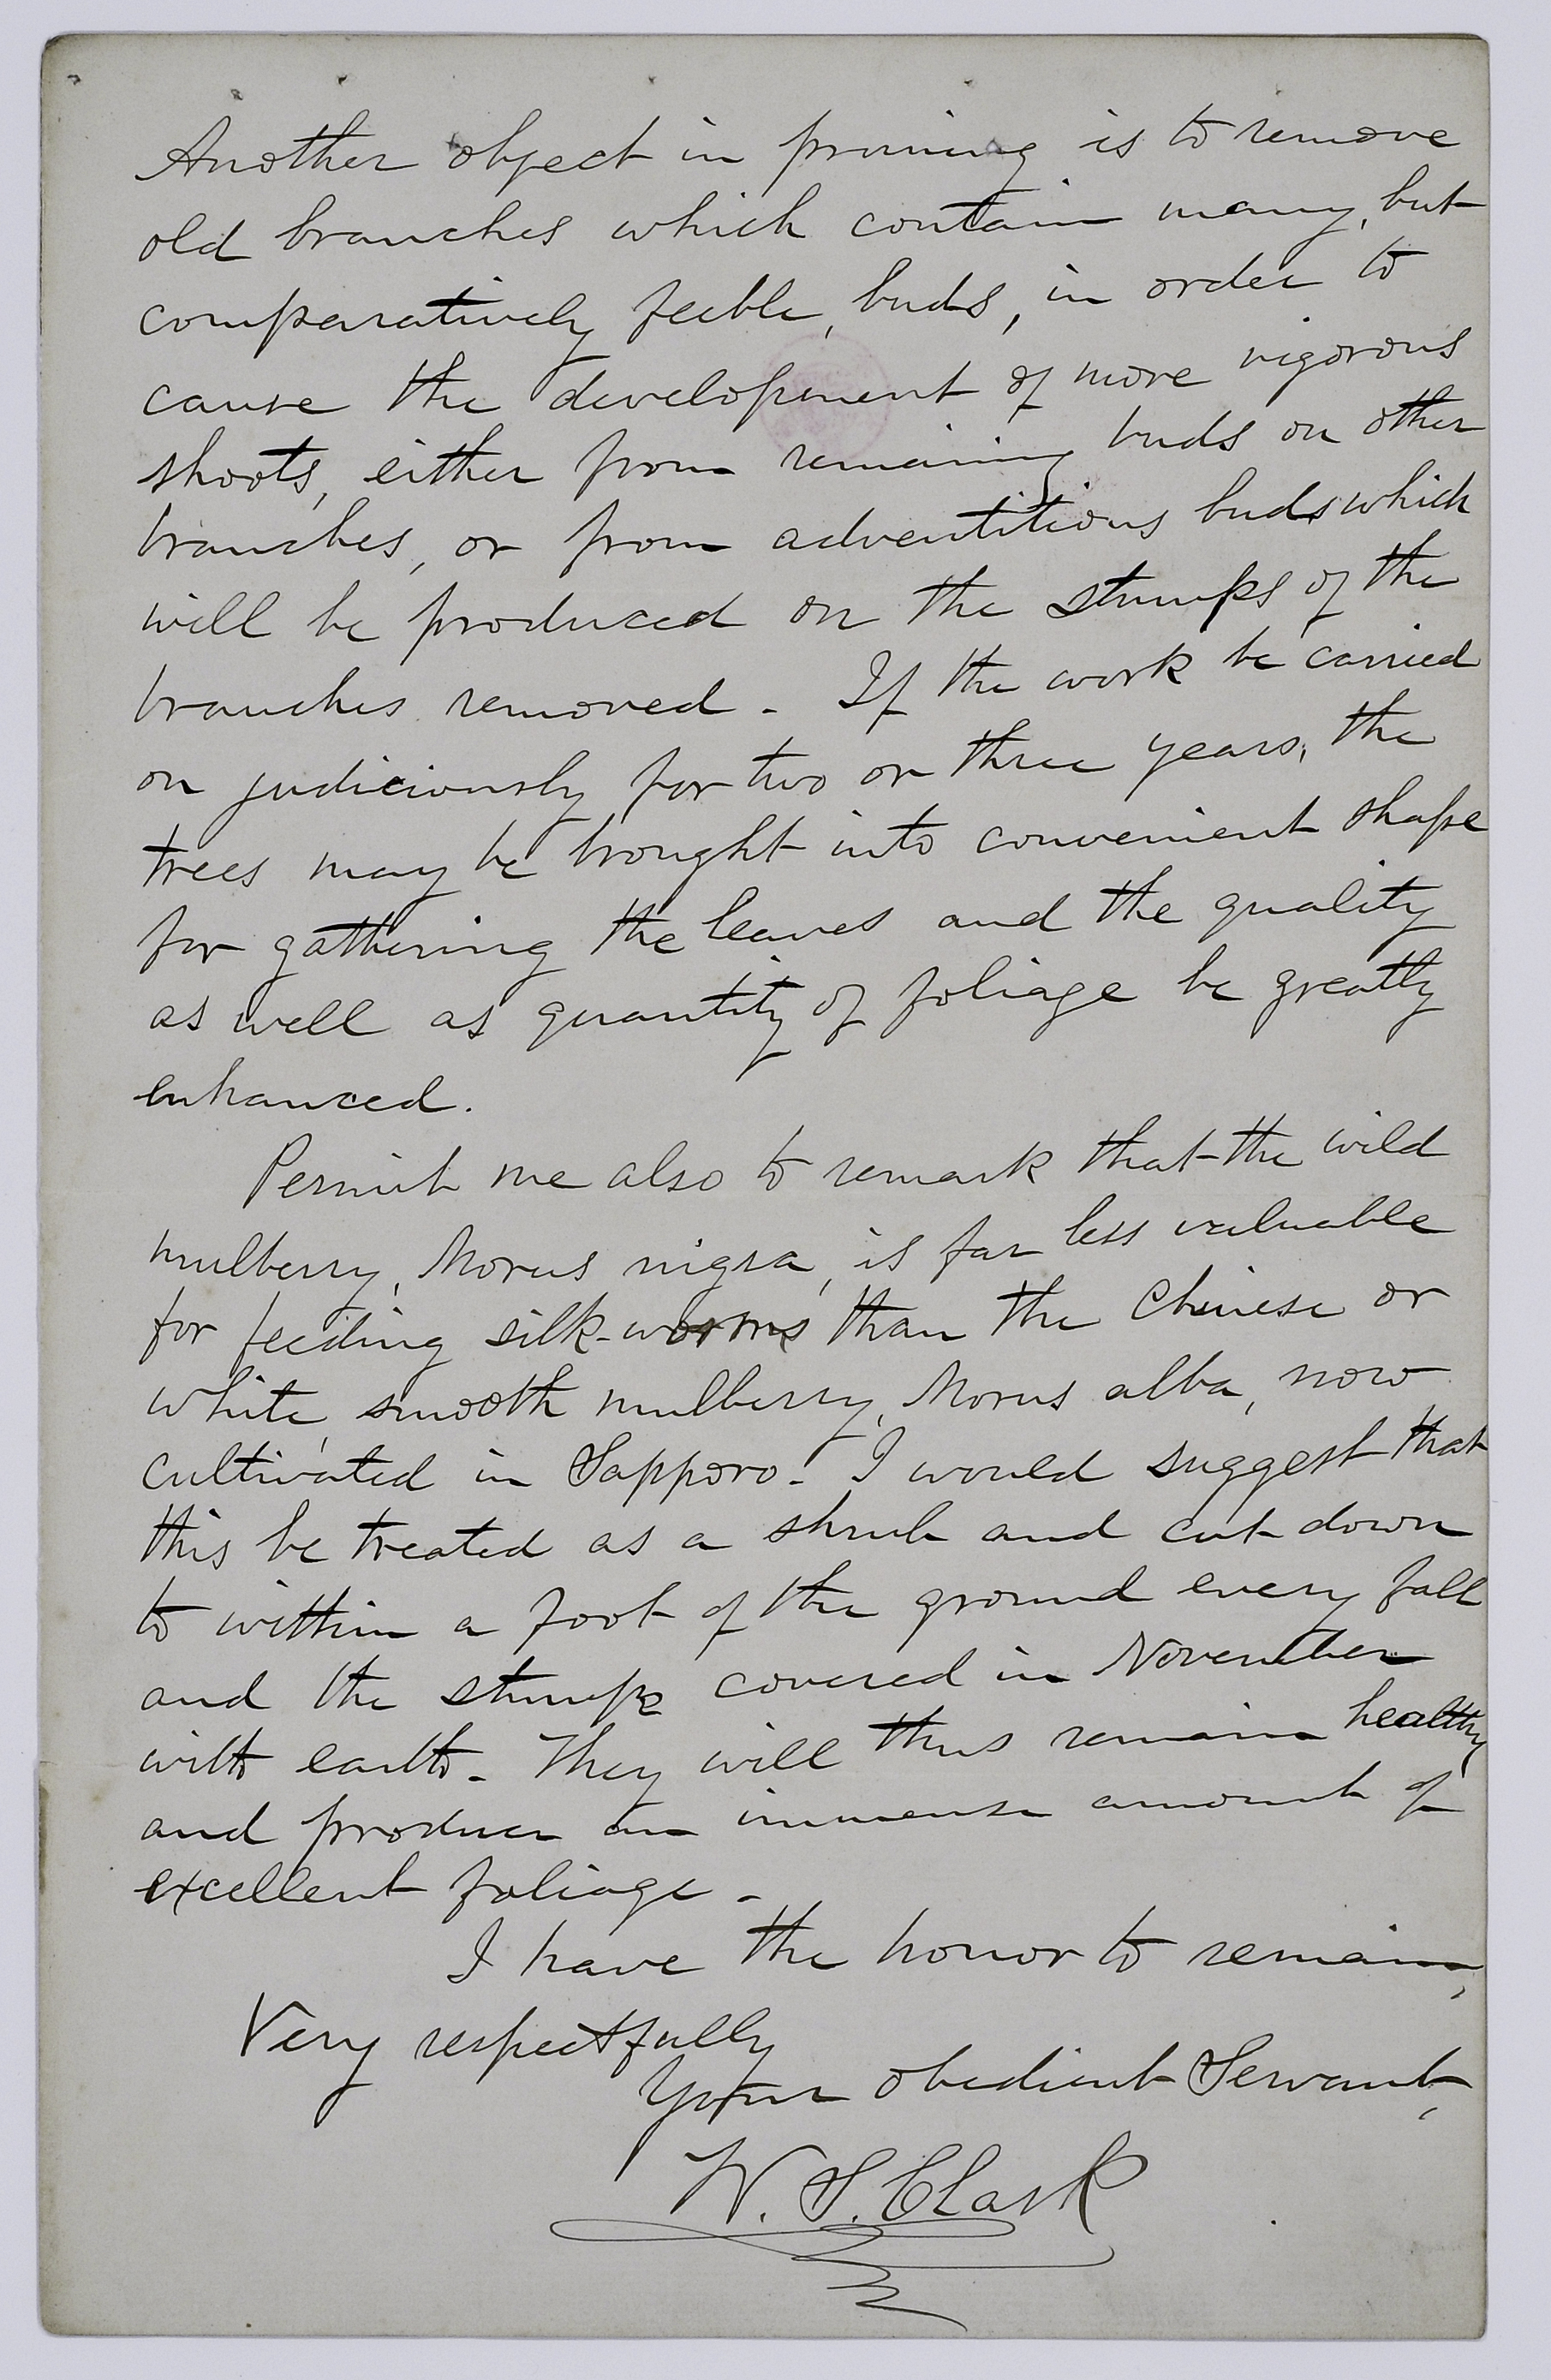 Another object in pruning is to remove
old branches which contain many, but
comparatively feeble, buds, in order to
cause the development of more vigorous
shoots, either from remaining buds on other
branches, or from adventitious buds which
will be produced on the stumps of the
branches removed. If the work be carried
on judiciously for two or three years, the
trees may be brought into convenient shape
for gathering the leaves and the quality
as well as quantity of foliage be greatly
enhanced.
Permit me also to remark that the wild
mulberry, Morus nigra, is far less valuable
for feeding silk-worms than the Chinese or
white, smooth mulberry, Morus alba, now
cultivated in Sapporo. I would suggest that
this be treated as a shrub and cut down
to within a foot of the ground every fall
and the stumps covered in November
with earth. They will thus remain healthy
and produce an immense amount of
excellent foliage.
I have the honor to remain,
Very respectfully
Your obedient Servant,
W. S. Clark